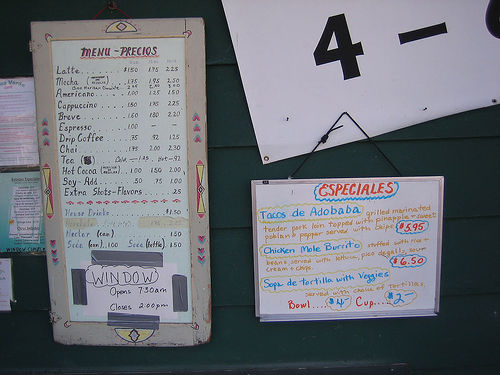 4 -
MENU - PRECIOS
Latte....... $150 175 225
Mocha 175 195 250
Americano.... 100 125 150
Cappuccino.... 150 175 225
Breve..... 160 180 220
Espresso....... 100 - -
Drip Coffee..... 75 92 125
Chai........ 175 200 230
Tea
Hot Cocoa 100 150 200
Soy - Add....... 50 75 100
Extra Shots - Flavors...... 25
House Drinks $1.50
Nectar (can) 1.50
Soda (can)..100 Soda (bottle) 150
WINDOW
Opens 7:30am
Closes 2:00pm
ESPECIALES
Tacos de Adobada grilled marinated
tender pork loin topped with pineapple - sweet
poblano pepper served with chips $5.95
Chicken Mole Burrito stuffed with rice -
beans served with lettuce, pico de gallo, sour
cream + chips. $6.50
Sopa de tortilla with Veggies
served with choice of Tortillas,
Bowl....$4- Cup....$2-